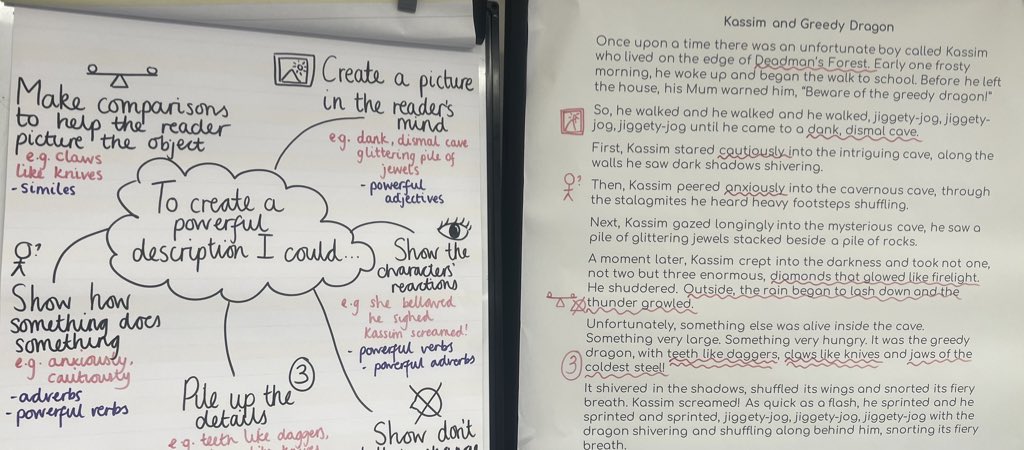 Make comparisons
to help the reader
picture the object
e.g. claws
like knives
- similes
Create a picture
in the reader's
mind
e.g. dank, dismal cave
glittering pile of
jewels
- powerful
adjectives
To create a
powerful
description I could...
?
Show how
something does
something
e.g. anxiously,
cautiously
- adverbs
- powerful verbs
Show the
characters'
reactions
e.g she bellowed
he sighed
Kassim screamed!
- powerful verbs
- powerful adverbs
Pile up the 3
details
e.g. teeth like daggers,
Show don't
Kassim and Greedy Dragon
Once upon a time there was an unfortunate boy called Kassim
who lived on the edge of Deadman's Forest. Early one frosty
morning, he woke up and began the walk to school. Before he left
the house, his Mum warned him, "Beware of the greedy dragon!"
So, he walked and he walked and he walked, jiggety-jog, jiggety-
jog, jiggety-jog until he came to a dank, dismal cave.
First, Kassim stared cautiously into the intriguing cave, along the
walls he saw dark shadows shivering.
?
Then, Kassim peered anxiously into the cavernous cave, through
the stalagmites he heard heavy footsteps shuffling.
Next, Kassim gazed longingly into the mysterious cave, he saw a
pile of glittering jewels stacked beside a pile of rocks.
A moment later, Kassim crept into the darkness and took not one,
not two but three enormous, diamonds that glowed like firelight.
He shuddered. Outside, the rain began to lash down and the
thunder growled.
Unfortunately, something else was alive inside the cave.
Something very large. Something very hungry. It was the greedy
dragon, with teeth like daggers, claws like knives and jaws of the
3 coldest steel!
It shivered in the shadows, shuffled its wings and snorted its fiery
breath. Kassim screamed! As quick as a flash, he sprinted and he
sprinted and sprinted, jiggety-jog, jiggety-jog, jiggety-jog with the
dragon shivering and shuffling along behind him, snorting its fiery
breath.